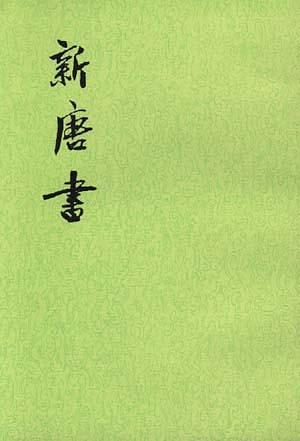 新唐書